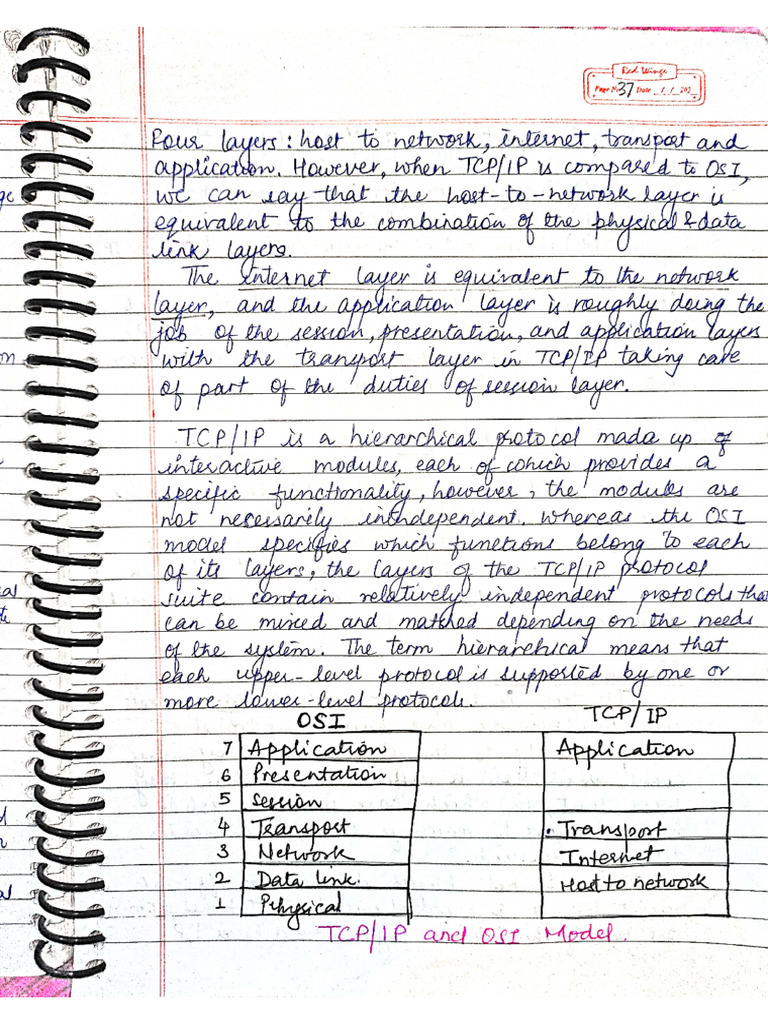 Red Wings
Page No 37 Date / / 202
Four layers : host to network, internet, transport and
application. However, when TCP/IP is compared to OSI,
we can say that the host-to-network layer is
equivalent to the combination of the physical & data
link layers.
The internet layer is equivalent to the network
layer, and the application layer is roughly doing the
job of the session, presentation, and application layers
with the transport layer in TCP/IP taking care
of part of the duties of session layer.
TCP/IP is a hierarchical protocol mada up of
interactive modules, each of which provides a
specific functionality, however, the modules are
not necessarily intndependent. whereas the OSI
model specifies which functions belong to each
of its layers, the layers of the TCP/IP protocol
suite contain relatively independent protocols that
can be mixed and matched depending on the needs
of the system. The term hierarchical means that
each upper-level protocol is supported by one or
more lower-level protocols.
OSI TCP/IP
7 Application Application
6 Presentation
5 session
4 Transport Transport
3 Network Internet
2 Data link. Host to network
1 Physical
TCP/IP and OSI Model.